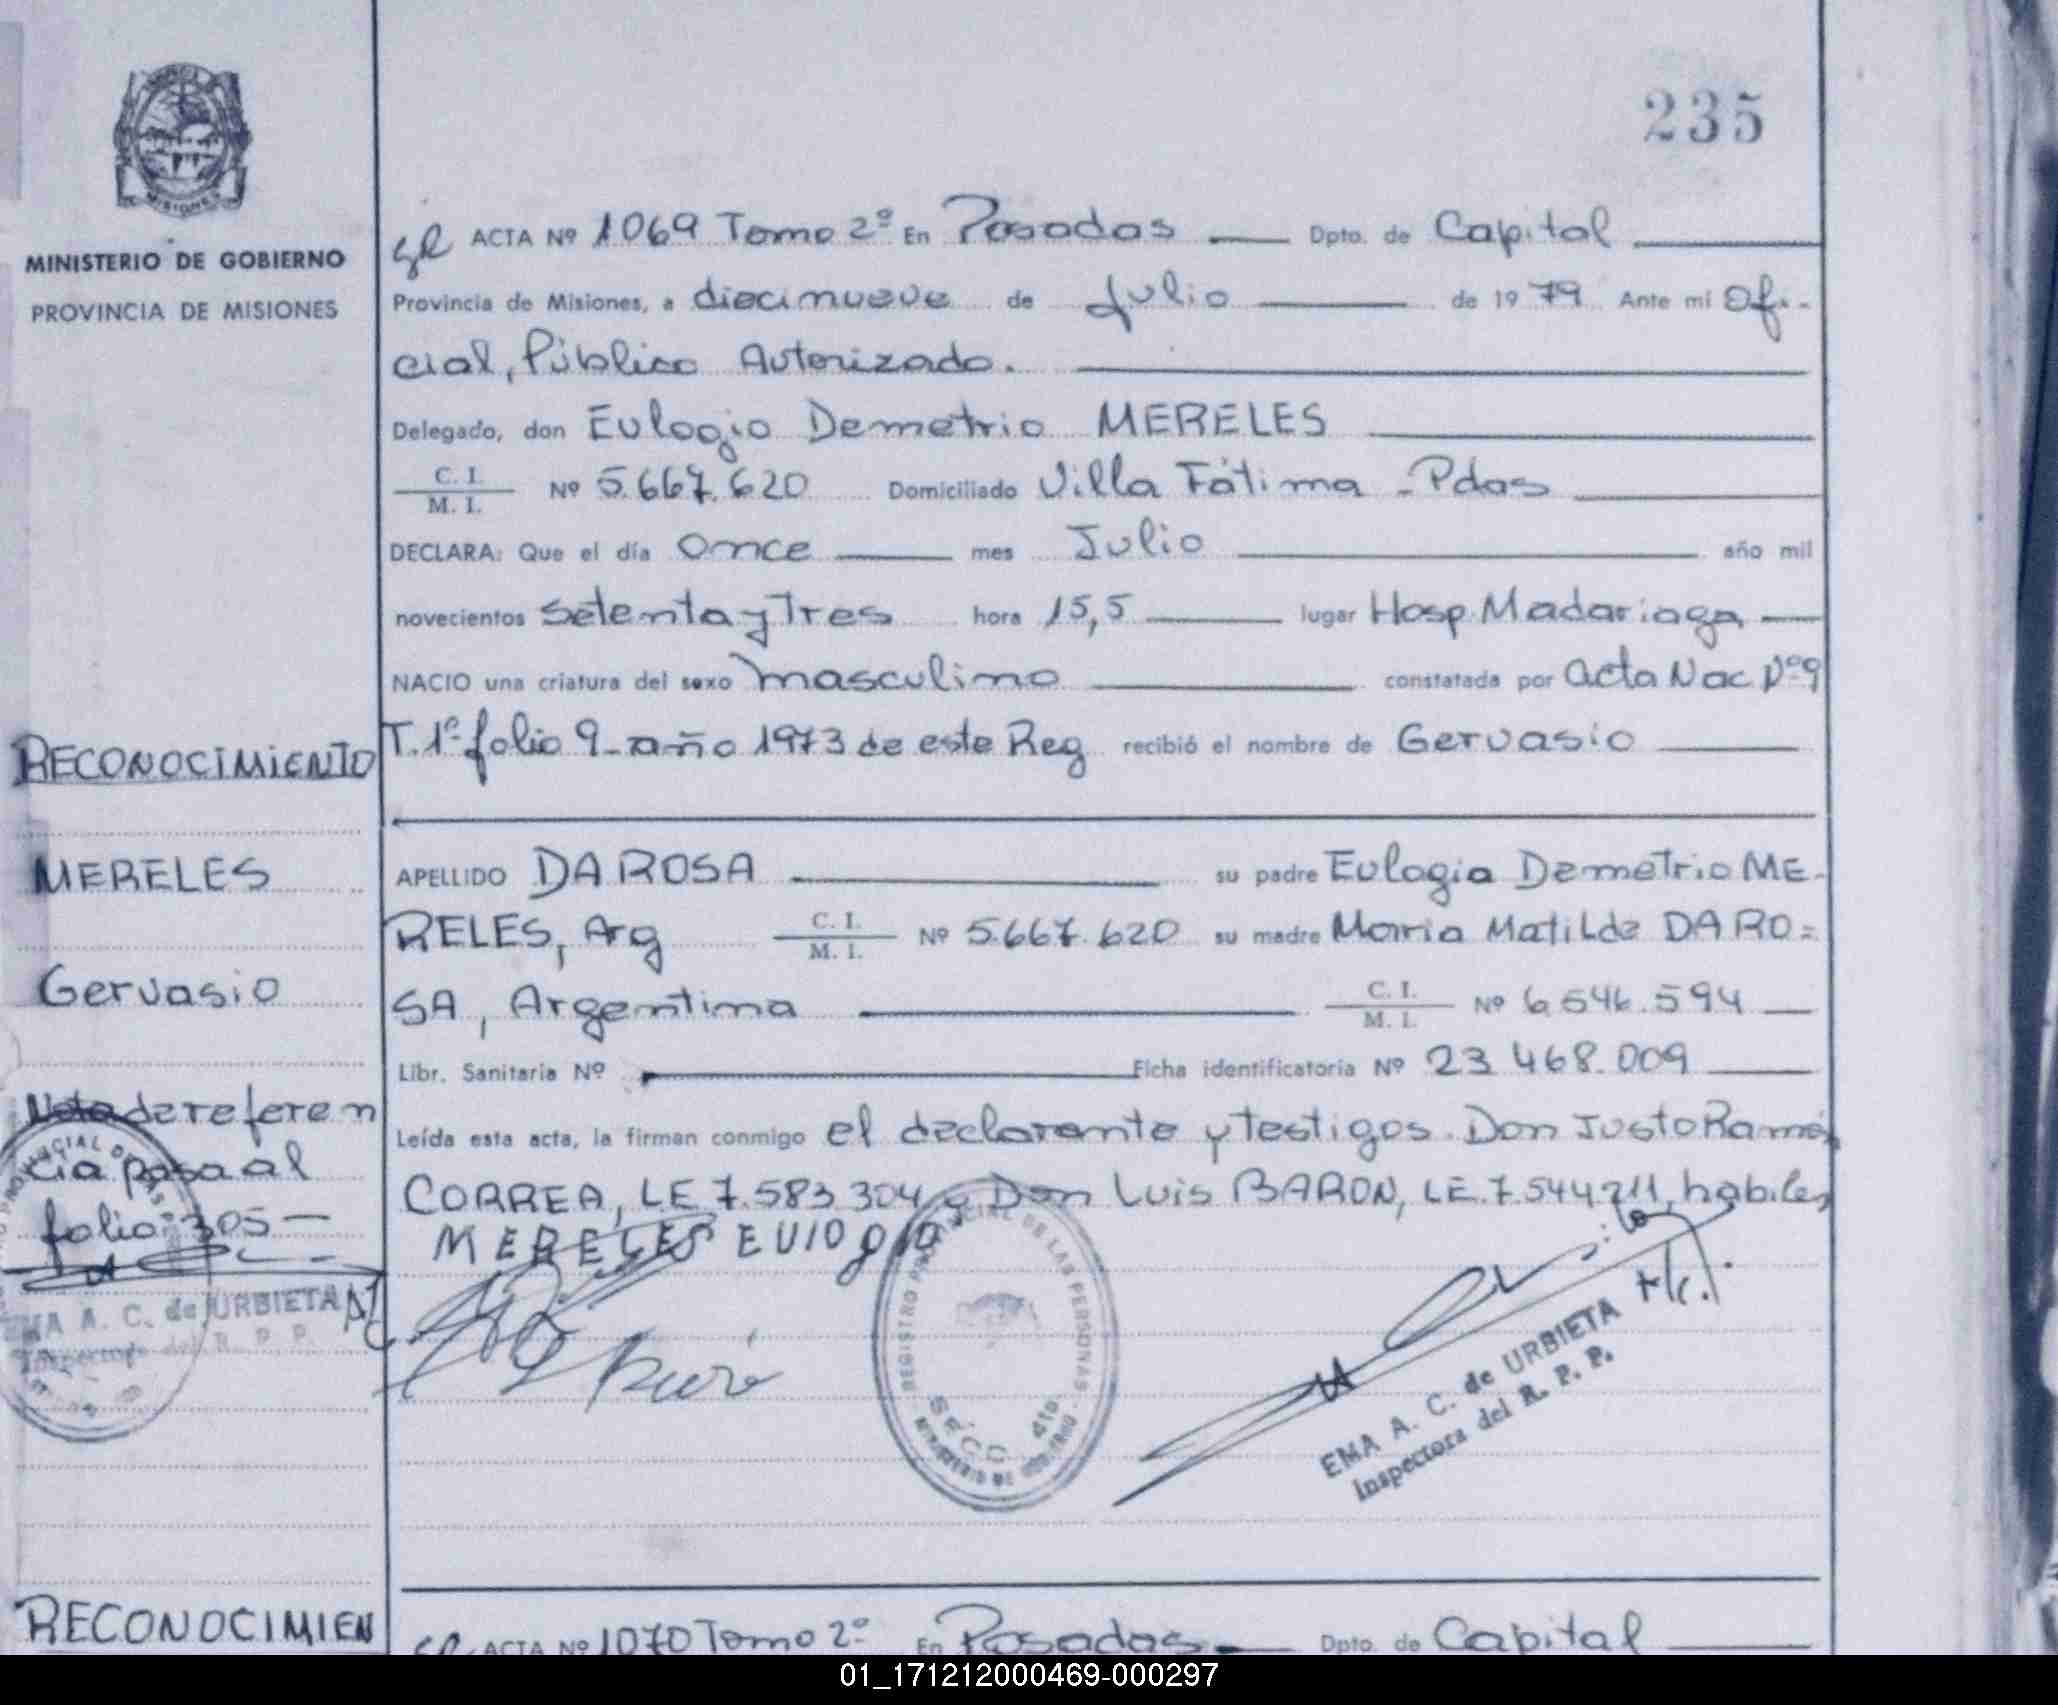 235
MINISTERIO DE GOBIERNO
PROVINCIA DE MISIONES
ACTA Nº 1069 Tomo 2º En Posadas Dpto. de Capital
Provincia de Misiones, a diecinueve de Julio de 1979 Ante mi Ofi-
cial, Público Autorizado.
Delegado, don Eulogio Demetrio MERELES
C. I.
M. I. Nº 5.667.620 Domiciliado Villa Fátima - Pdas
DECLARA: Que el día once mes Julio año mil
novecientos Setenta y Tres hora 15,5 lugar Hosp. Madariaga
NACIO una criatura del sexo masculino constatada por Acta Nac Nº 9
T. 1º folio 9 - año 1973 de este Reg recibió el nombre de Gervasio
APELLIDO DA ROSA su padre Eulogia Demetrio ME-
RELES, Arg C. I. M. I. Nº 5.667.620 su madre Maria Matilde DA RO=
SA, Argentina C. I. M. I. Nº 6.546.594
Libr. Sanitaria Nº Ficha identificatoria Nº 23.468.009
Leída esta acta, la firman conmigo el declarante y testigos. Don Justo Ramón
CORREA, LE. 7.583.304 y Don Luis BARON, LE. 7.544.211, hábiles
MERELES EUlOgiO
RECONOCIMIENTO
MERELES
Gervasio
Nota de referen
cia pasa al
folio: 305 —
EMA A. C. de URBIETA
Inspectora del R. P. P.
REGISTRO PROVINCIAL DE LAS PERSONAS
MINISTERIO DE GOBIERNO
EMA A. C. de URBIETA
Inspectora del R. P. P.
RECONOCIMIEN
ACTA Nº 1070 Tomo 2º En Posadas Dpto. de Capital
01_171212000469-000297